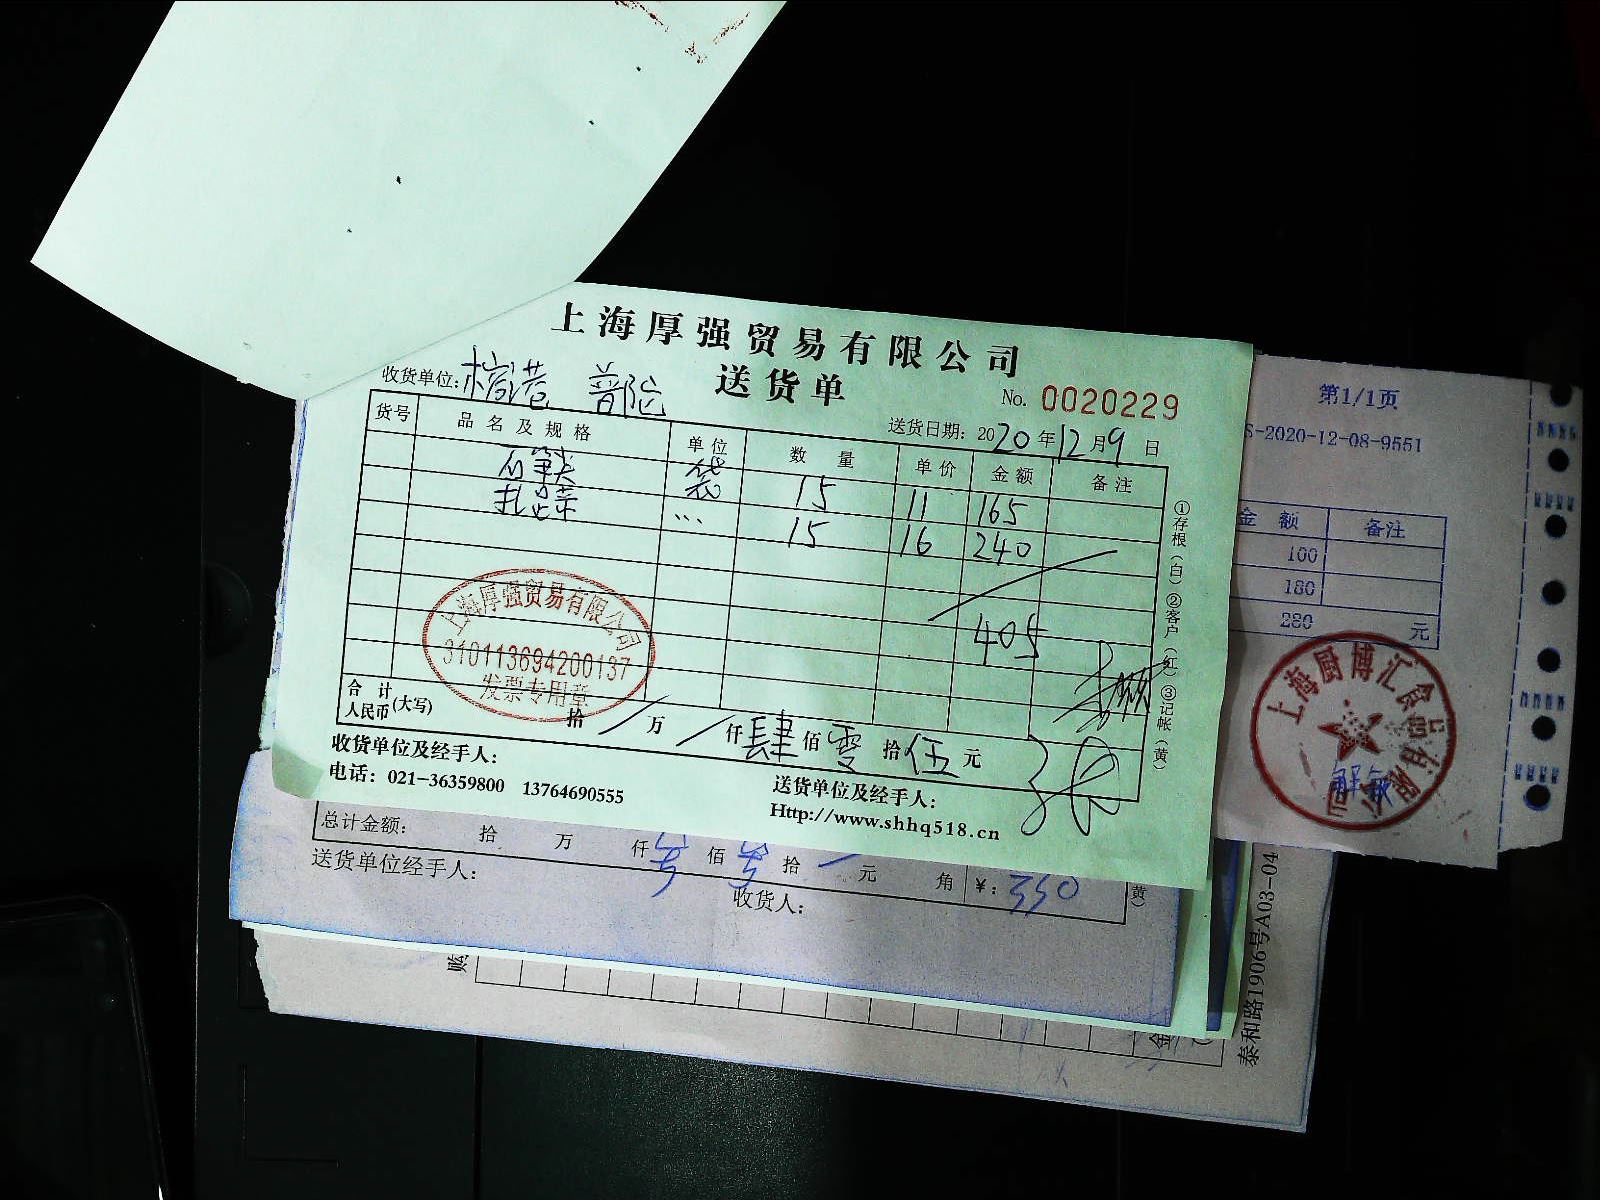 上海厚强贸易有限公司
送货单
No. 0020229
收货单位: 普陀
送货日期: 2020年12月9日
货号 品名及规格 单位 数量 单价 金额 备注
袋 15 11 165
扎 菜 ... 15 16 240
405
上海厚强贸易有限公司
310113694200137
发票专用章
合计人民币(大写) 拾 / 万 / 仟 肆 佰 零 拾 伍 元
收货单位及经手人:
送货单位及经手人:
电话: 021-36359800 13764690555
Http://www.shhq518.cn
①存根(白)②客户(红)③记帐(黄)
第1/1页
S-2020-12-08-9551
金额 备注
100
180
280 元
上海厨博汇食品
总计金额: 拾 万 仟 佰 拾 元 角 ¥: 350
送货单位经手人:
收货人:
黄)
账
金
泰和路1906号A03-04